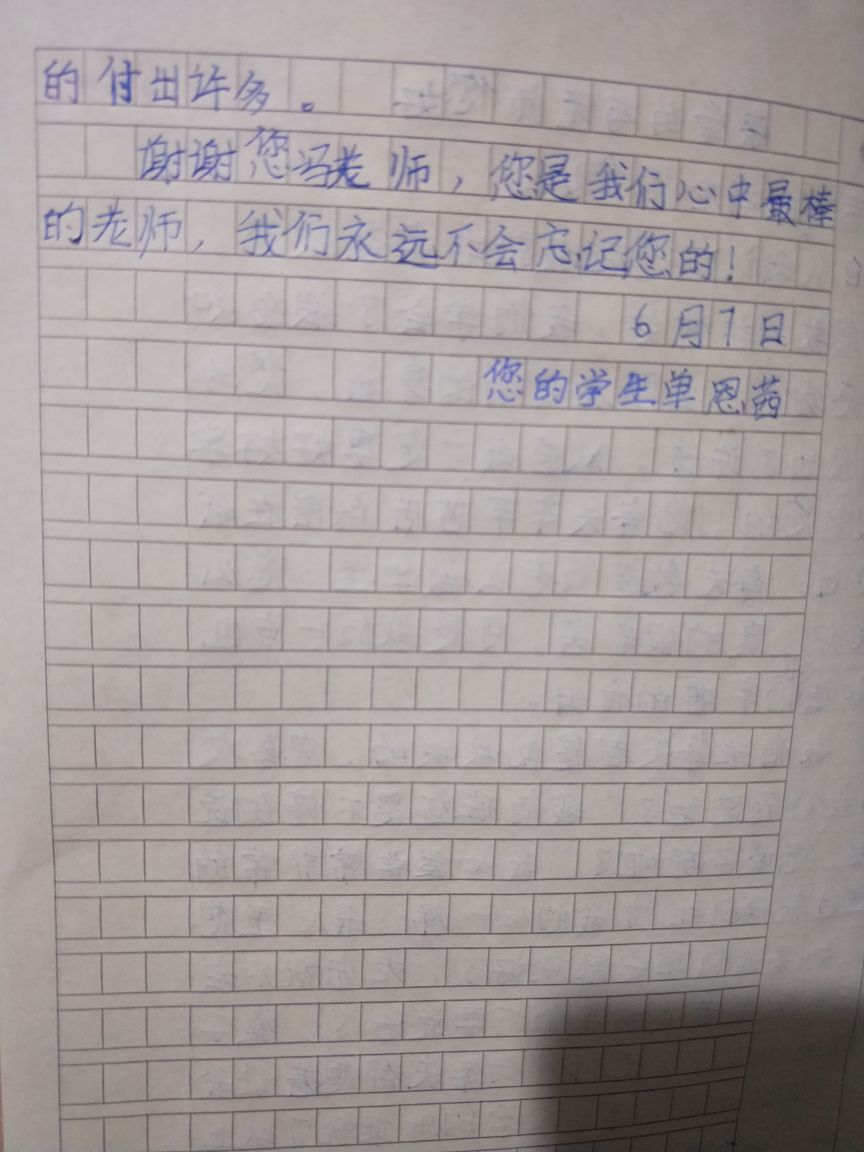 的付出许多。
谢谢您冯老师，您是我们心中最棒
的老师，我们永远不会忘记您的！
6月7日
您的学生单恩茜